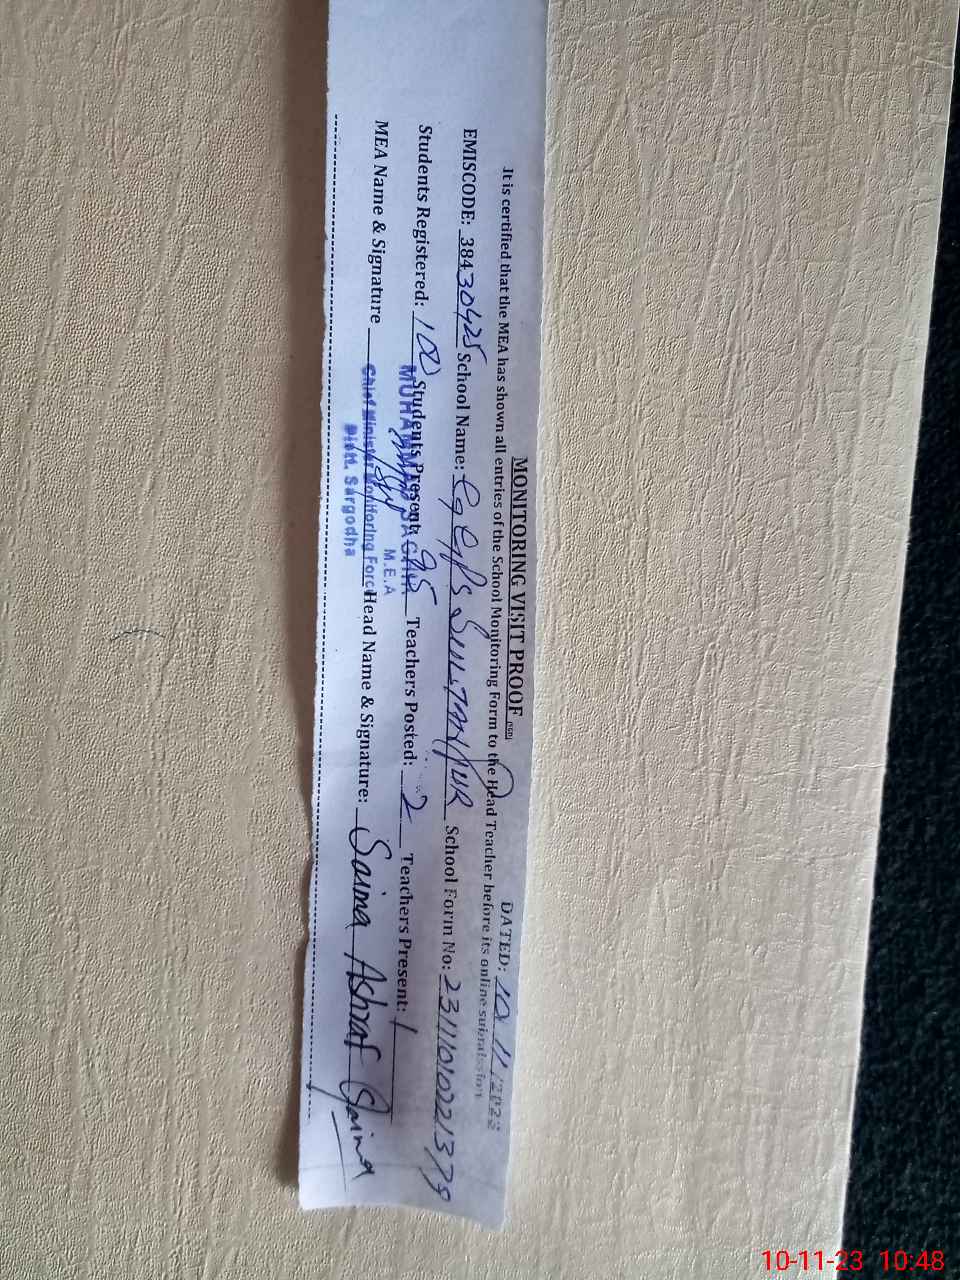 MONITORING VISIT PROOF (SGD) DATED: 10/11/2023
It is certified that the MEA has shown all entries of the School Monitoring Form to the Head Teacher before its online submission
EMISCODE: 38430425 School Name: SULTANPUR School Form No:
Students Registered: 100 Students Present: 95 Teachers Posted: 2 Teachers Present: 1
MUHAMMAD
M.E.A
MEA Name & Signature Head Name & Signature: Saima Ashraf Saima
Chief Minister Monitoring Force
Distt. Sargodha
10-11-23 10:48